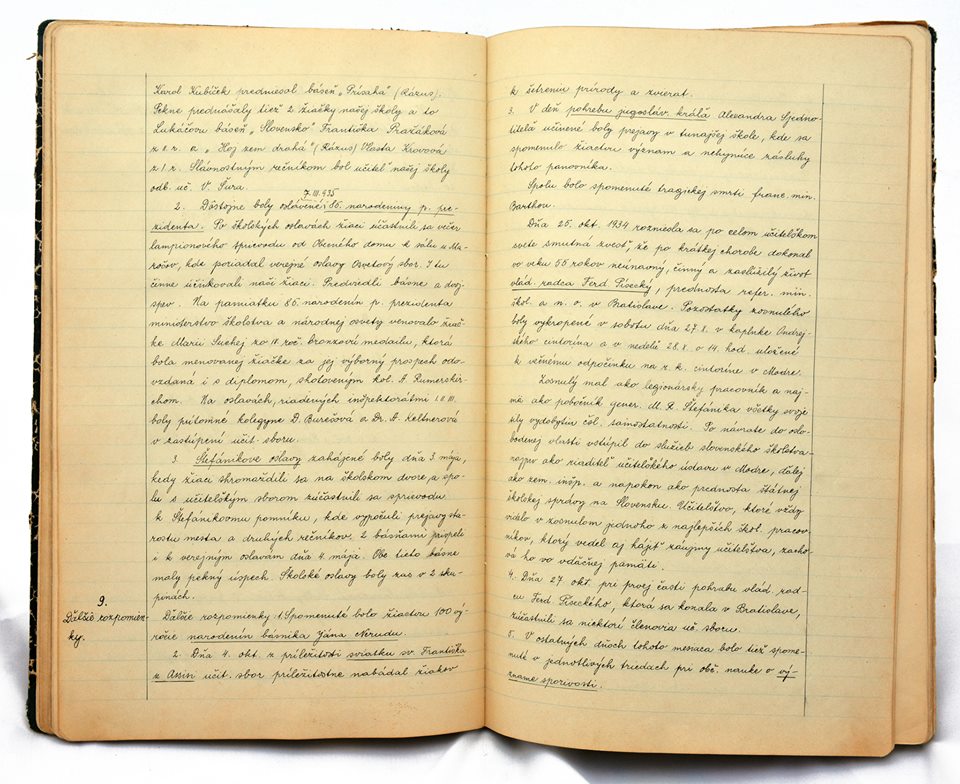 Karol Kubíček predniesol báseň „Prísaha" (Rázus).
Pekne prednášaly tiež 2 žiačky našej školy a to
Lukáčovu báseň „Slovensko" Františka Pražáková
z 8. r. a „Hoj zem drahá" (Rázus) Vlasta Krovová
z 1 r. Slávnostným rečníkom bol učiteľ našej školy
odb. uč. V. Šura.
7. III. 935
2. Dôstojne boly oslávené i 85. narodeniny p. pre-
zidenta. Po školských oslavách žiaci účastnili sa večer
lampionového sprievodu od Obecného domu k sálu u Ma-
ročov, kde poriadal verejné oslavy Osvetový sbor. I tu
činne účinkovali naši žiaci. Predviedli básne a dvoj-
spev. Na pamiatku 85. narodenín p. prezidenta
ministerstvo školstva a národnej osvety venovalo žiač-
ke Marii Suchej zo IV. roč. bronzovú medailu, ktorá
bola menovanej žiačke za jej výborný prospech odo-
vzdaná i s diplomom, zhotoveným kol. A. Rumerskir-
chom. Na oslavách, riadených inšpektorátmi I. II. III.
boly prítomné kolegyne D. Burešová a Dr. A. Keltnerová
v zastúpení učit. sboru.
3. Štefánikove oslavy zahájené boly dňa 3. mája,
kedy žiaci shromaždili sa na školskom dvore a spo-
lu s učiteľským sborom zúčastnili sa sprievodu
k Štefánikovmu pomníku, kde vypočuli prejavy sta-
rostu mesta a druhých rečníkov. 2 básňami prispeli
i k verejným oslavám dňa 4. mája. Obe tieto básne
maly pekný úspech. Školské oslavy boly zas v 2 sku-
pinách.
9.
Ďalšie rozpomien-
ky.
Ďalšie rozpomienky: 1. Spomenuté bolo žiactvu 100 vý-
ročie narodenín básnika Jána Nerudu.
2. Dňa 4. okt. z príležitosti sviatku sv. Františka
z Assisi učit. sbor príležitostne nabádal žiakov
k šetreniu prírody a zvierat.
3. V deň pohrebu jugosláv. kráľa Alexandra Sjedno-
titeľa učinené boly prejavy v tunajšej škole, kde sa
spomenulo žiactvu význam a nehynúce zásluhy
tohoto panovníka.
Spolu bolo spomenuté tragickej smrti franc. min.
Barthou.
Dňa 25. okt. 1934 rozniesla sa po celom učiteľskom
svete smutná zvesť, že po krátkej chorobe dokonal
vo veku 55 rokov neúnavný, činný a zaslúžilý život
vlád. radca Ferd Písecký, prednosta refer. min.
škol. a n. o. v Bratislave. Pozostatky zosnulého
boly vykropené v sobotu dňa 27. X. v kaplnke Andrej-
ského cintorína a v nedeľu 28. X. o 14. hod. uložené
k večnému odpočinku na r. k. cintoríne v Modre.
Zosnulý mal ako legionársky pracovník a naj-
mä ako pobočník gener. M. R. Štefánika všetky svoje
sily vydobytiu čsl. samostatnosti. Po návrate do oslo-
bodenej vlasti vstúpil do služieb slovenského školstva
najprv ako riaditeľ učiteľského ústavu v Modre, ďalej
ako zem. inšp. a napokon ako prednosta štátnej
školskej správy na Slovensku. Učiteľstvo, ktoré vždy
videlo v zosnulom jednoho z najlepších škol. pracov-
níkov, ktorý vedel aj hájiť záujmy učiteľstva, zacho-
vá ho vo vďačnej pamäti.
4. Dňa 27. okt. pri prvej časti pohrabu vlád. rad-
cu Ferd Píseckého, ktorá sa konala v Bratislave,
zúčastnili sa niektorí členovia uč. sboru.
5. V ostatných dňoch tohoto mesiaca bolo tiež spome-
nuté v jednotlivých triedach pri obč. nauke o vý-
zname sporivosti.